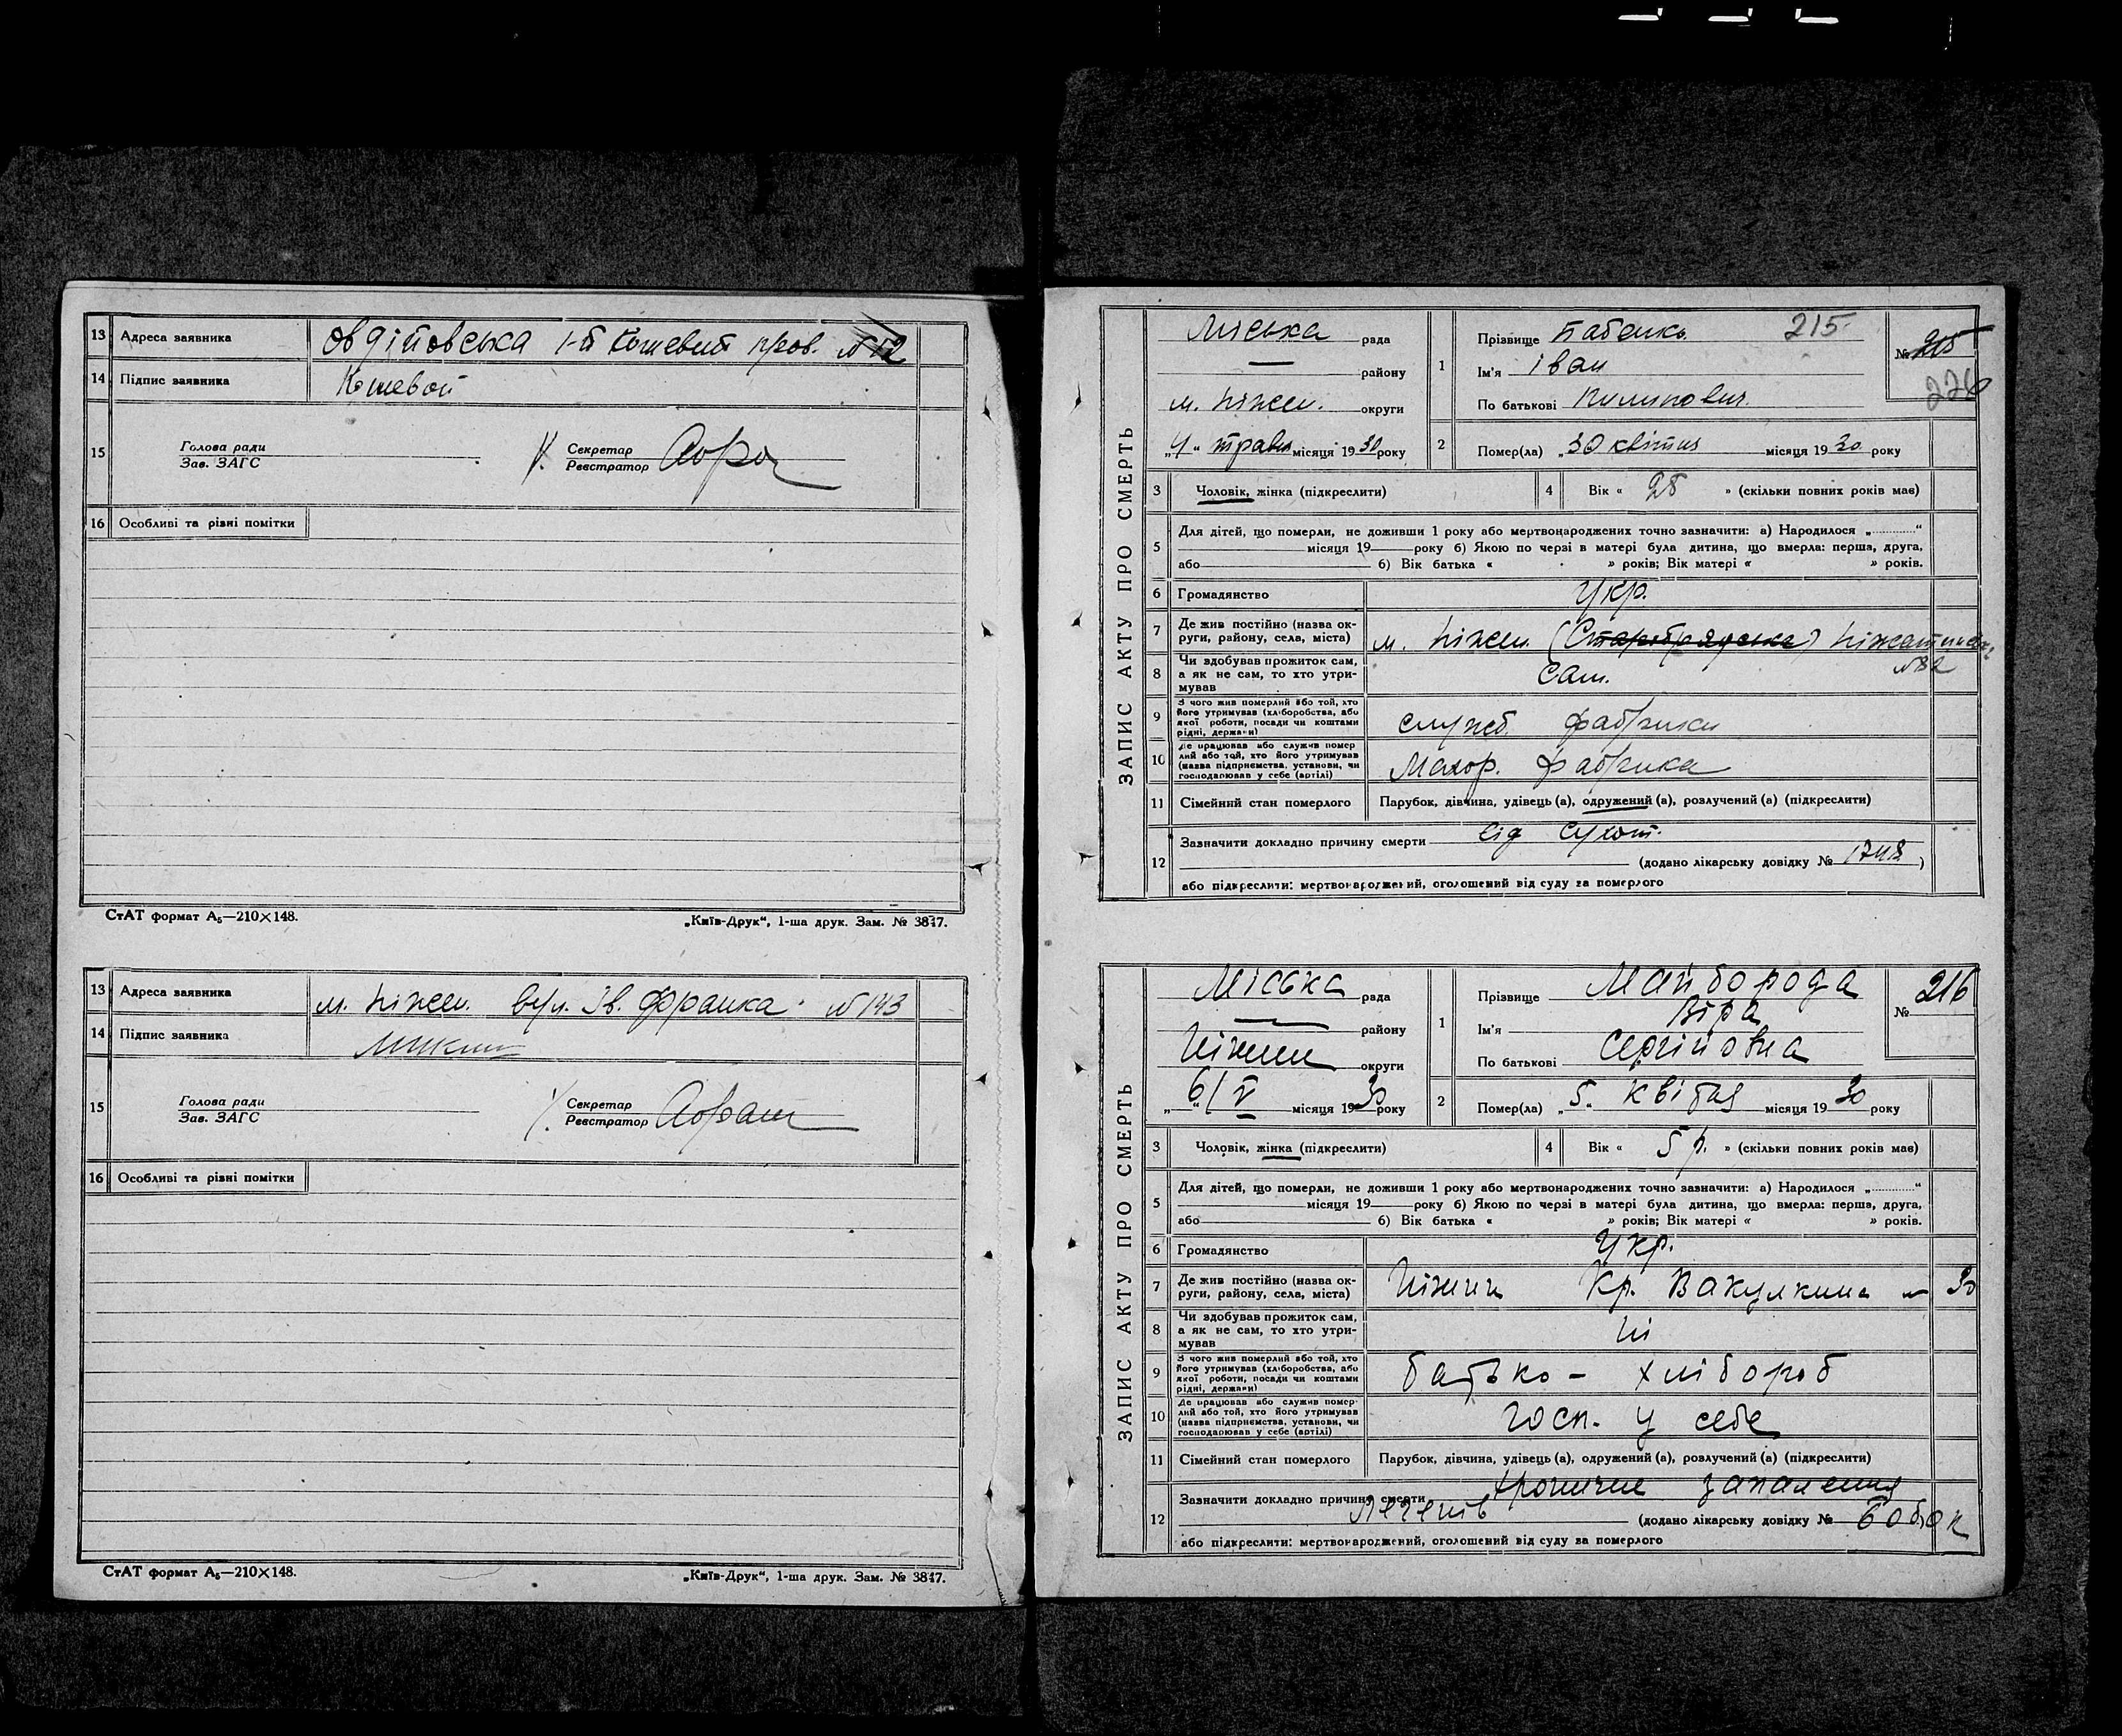 13 Адреса заявника Овдіївська 1-й Кошевий пров. №12
14 Підпис заявника Кошевой
15 Голова ради
Зав. ЗАГС
Секретар
Реєстратор
16 Особливі та різні помітки
СтАТ формат А₅—210×148. „Київ-Друк“, 1-ша друк. Зам. № 3847.
13 Адреса заявника м. Ніжен. вул. Ів. Франка №143
14 Підпис заявника
15 Голова ради
Зав. ЗАГС
Секретар
Реєстратор
16 Особливі та різні помітки
СтАТ формат А₅—210×148. „Київ-Друк“, 1-ша друк. Зам. № 3847.
ЗАПИС АКТУ ПРО СМЕРТЬ
Міська рада
району
м. Ніжен. округи
„4“ травн місяця 1930 року
1 Прізвище Бабенко 215
Ім'я Іван
По батькові Пилипович.
№ 215
226
2 Помер(ла) „30 квітня місяця 1930 року
3 Чоловік, жінка (підкреслити) 4 Вік « 28 » (скільки повних років має)
5 Для дітей, що померли, не доживши 1 року або мертвонароджених точно зазначити: а) Народилося „ “
місяця 19 року б) Якою по черзі в матері була дитина, що вмерла: перша, друга,
або б) Вік батька « » років; Вік матері « » років.
6 Громадянство Укр.
7 Де жив постійно (назва округи, району, села, міста) м. Ніжен. (Старобрядська)
№82
8 Чи здобував прожиток сам, а як не сам, то хто утримував Сам.
9 З чого жив померлий або той, хто його утримував (хліборобства, або якої роботи, посади чи коштами рідні, держави) служб. фабрики
10 Де працював або служив померлий або той, хто його утримував (назва підприємства, установи, чи господарював у себе (артілі) Махор. фабрика
11 Сімейний стан померлого Парубок, дівчина, удівець (а), одружений (а), розлучений (а) (підкреслити)
12 Зазначити докладно причину смерти від Сухот.
(додано лікарську довідку № 1748 )
або підкреслити: мертвонароджений, оголошений від суду за померлого
ЗАПИС АКТУ ПРО СМЕРТЬ
Міська рада
району
Ніжин округи
„6/V“ місяця 1930 року
1 Прізвище Майборода
Ім'я Віра
По батькові Сергіївна
№ 216
2 Помер(ла) „5“ квітня місяця 1930 року
3 Чоловік, жінка (підкреслити) 4 Вік « 5 р. » (скільки повних років має)
5 Для дітей, що померли, не доживши 1 року або мертвонароджених точно зазначити: а) Народилося „ “
місяця 19 року б) Якою по черзі в матері була дитина, що вмерла: перша, друга,
або б) Вік батька « » років; Вік матері « » років.
6 Громадянство Укр.
7 Де жив постійно (назва округи, району, села, міста) Ніжин Кр. Вакулкина № 30
8 Чи здобував прожиток сам, а як не сам, то хто утримував Ні
9 З чого жив померлий або той, хто його утримував (хліборобства, або якої роботи, посади чи коштами рідні, держави) батько - хлібороб
10 Де працював або служив померлий або той, хто його утримував (назва підприємства, установи, чи господарював у себе (артілі) госп. у себе
11 Сімейний стан померлого Парубок, дівчина, удівець (а), одружений (а), розлучений (а) (підкреслити)
12 Зазначити докладно причину смерти хронічне запалення
легенів (додано лікарську довідку №
або підкреслити: мертвонароджений, оголошений від суду за померлого